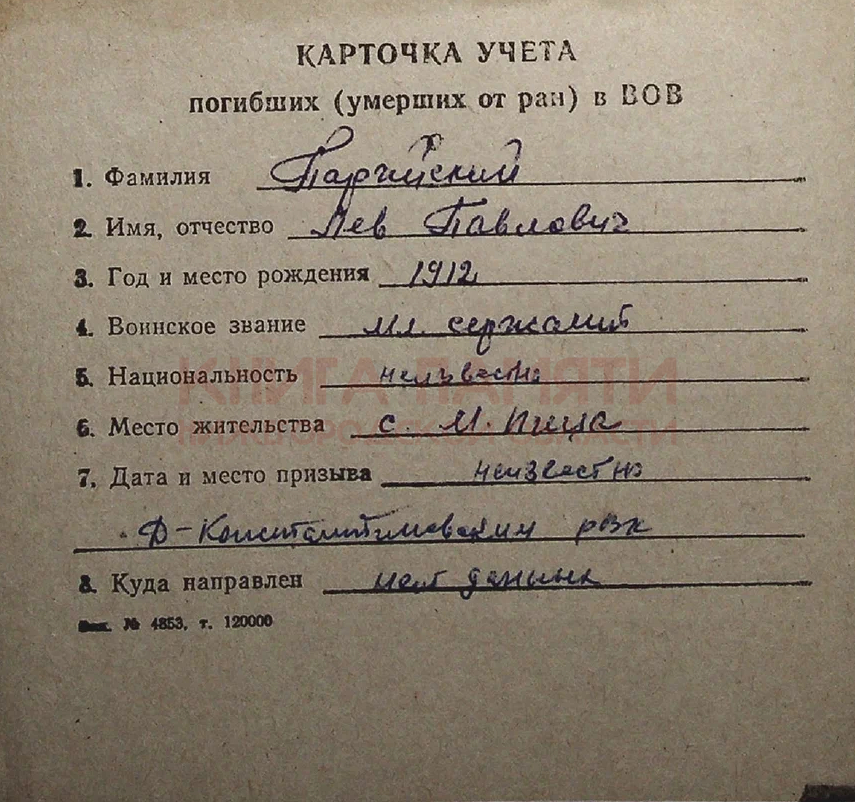 КАРТОЧКА УЧЕТА
погибших (умерших от ран) в ВОВ
1. Фамилия Паргийский
2. Имя, отчество Лев Павлович
3. Год и место рождения 1912
4. Воинское звание мл. сержант
5. Национальность неизвестно
6. Место жительства с. М. Пица
7. Дата и место призыва неизвестно
Д-Константиновским рвк
8. Куда направлен нет данных
Зак. № 4853, т. 120000
КНИГА ПАМЯТИ
НИЖЕГОРОДСКОЙ ОБЛАСТИ